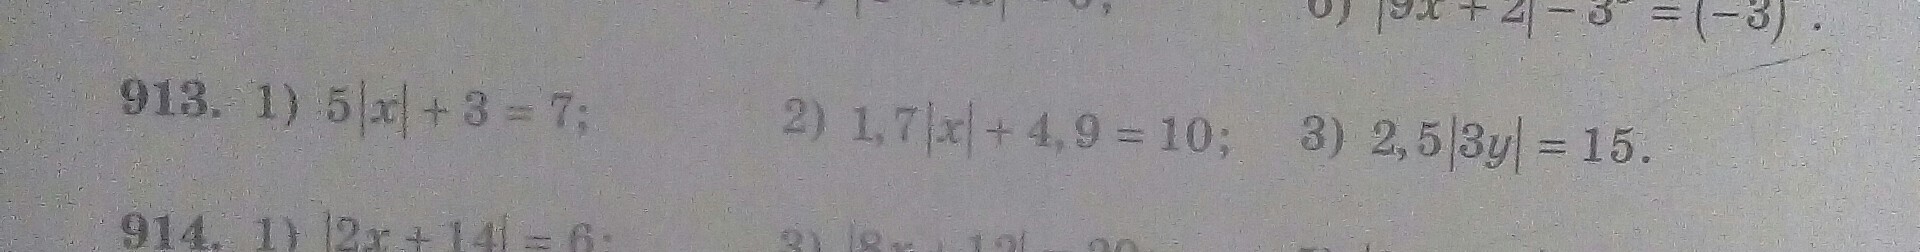 6) |9x + 2| − 3 = (−3) .
913. 1) 5|x| + 3 = 7; 2) 1,7|x| + 4,9 = 10; 3) 2,5|3y| = 15.
914. 1) |2x + 14| = 6;